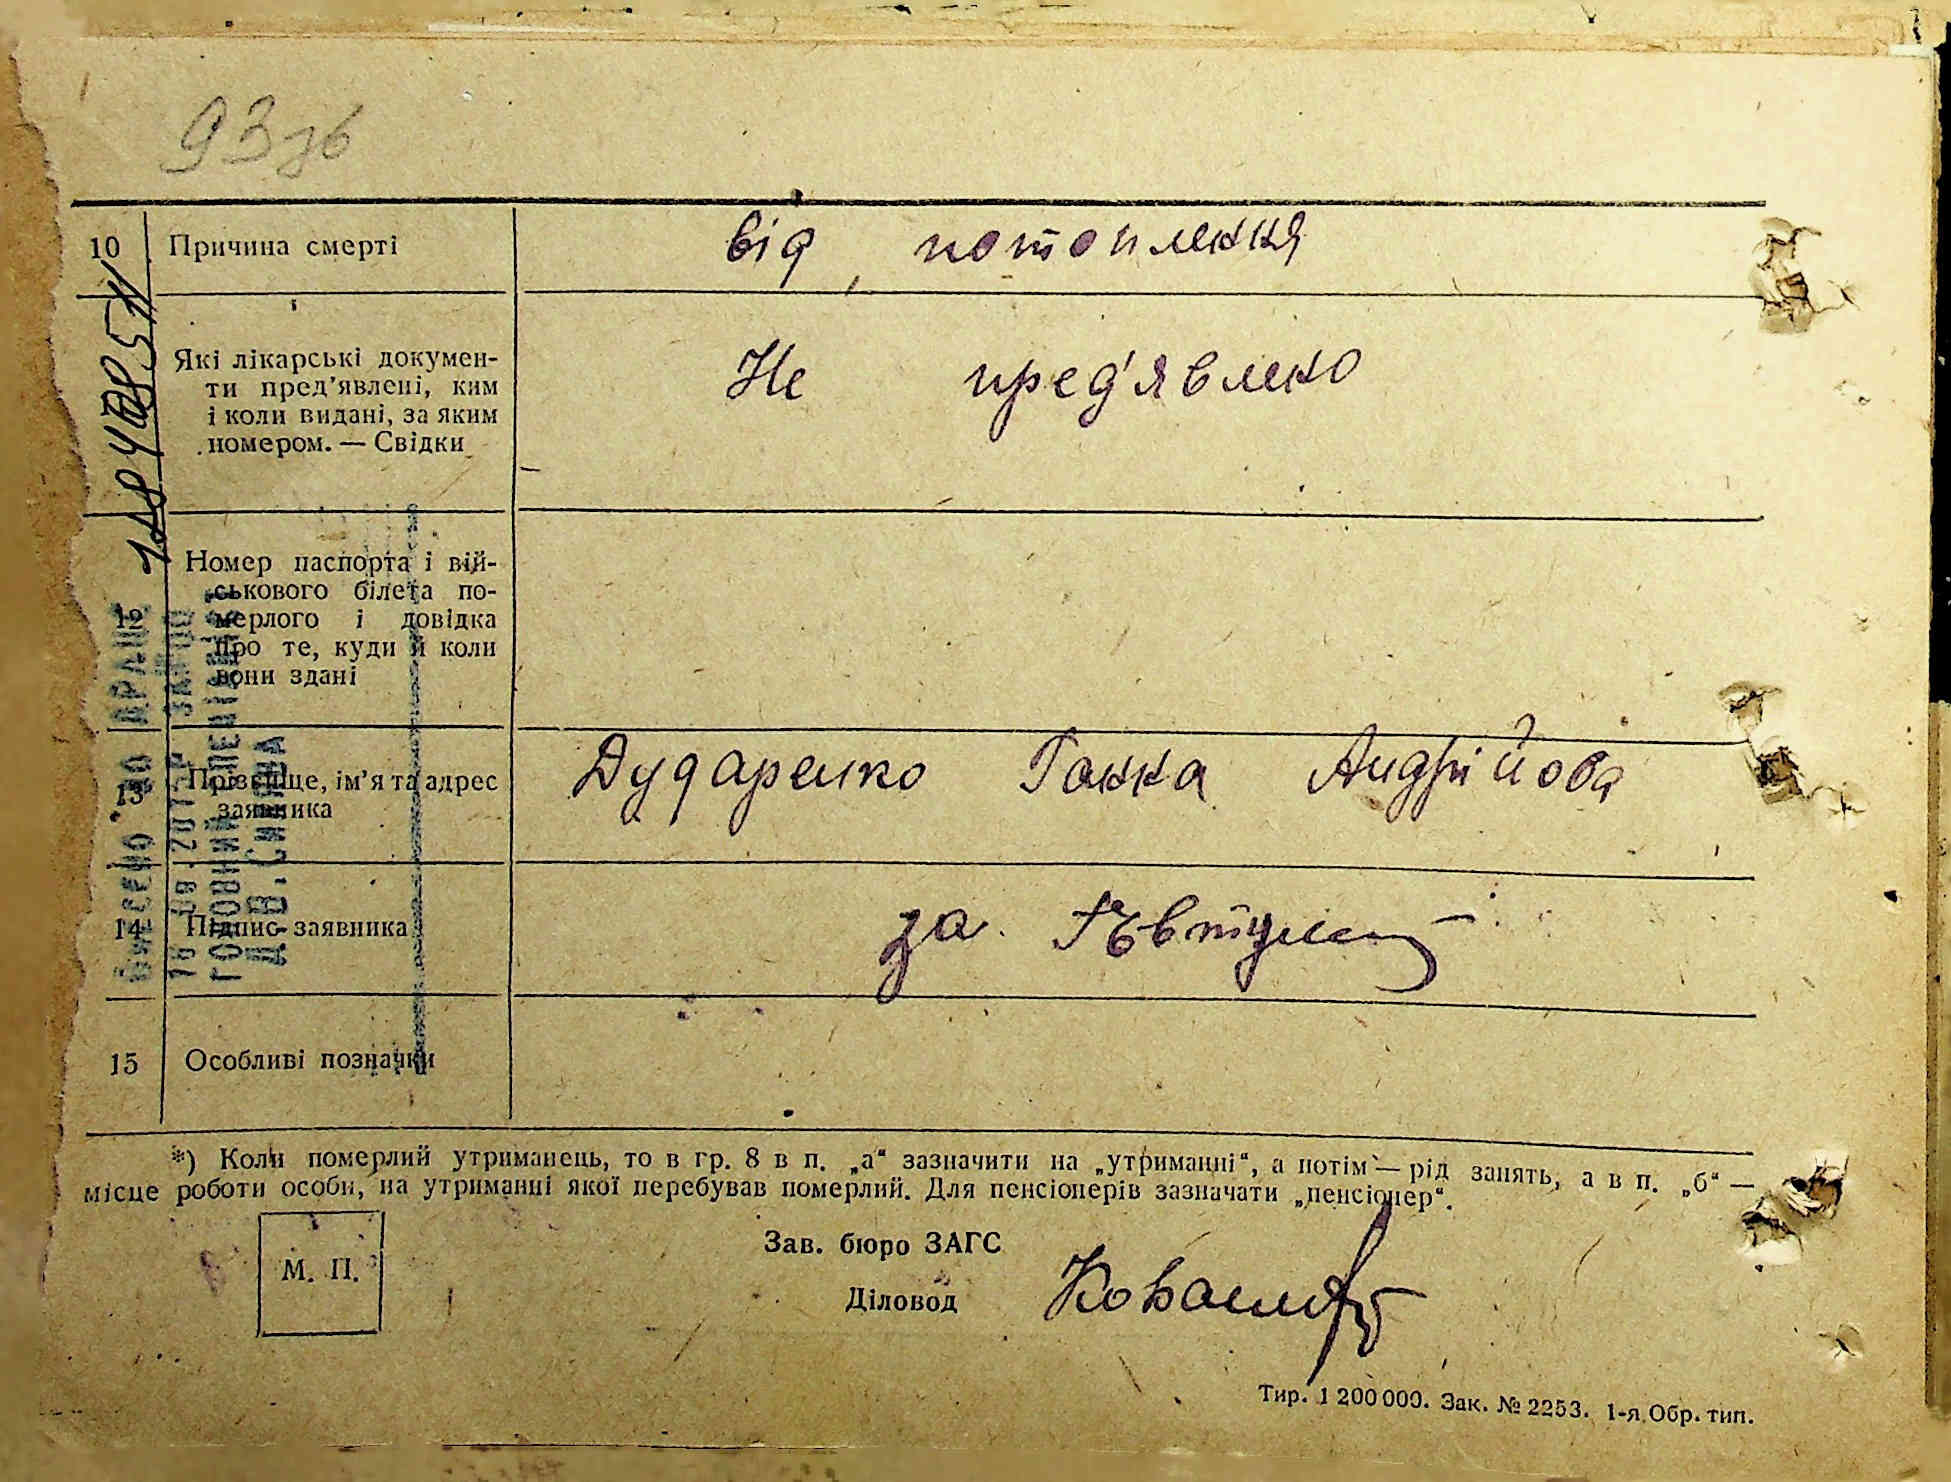 93 зв
10 Причина смерті
від потоплення
Які лікарські докумен-
ти пред’явлені, ким
і коли видані, за яким
номером. — Свідки
Не пред'явлено
12 Номер паспорта і вій-
ськового білета по-
мерлого і довідка
про те, куди й коли
вони здані
13 Прізвище, ім’я та адрес
заявника
Дударенко Ганна Андрійова
14 Підпис заявника
за
15 Особливі позначки
*) Коли померлий утриманець, то в гр. 8 в п. „а“ зазначити на „утриманні“, а потім — рід занять, а в п. „б“ —
місце роботи особи, на утриманні якої перебував померлий. Для пенсіонерів зазначати „пенсіонер“.
М. П.
Зав. бюро ЗАГС
Діловод
Тир. 1 200 000. Зак. № 2253. 1-я Обр. тип.